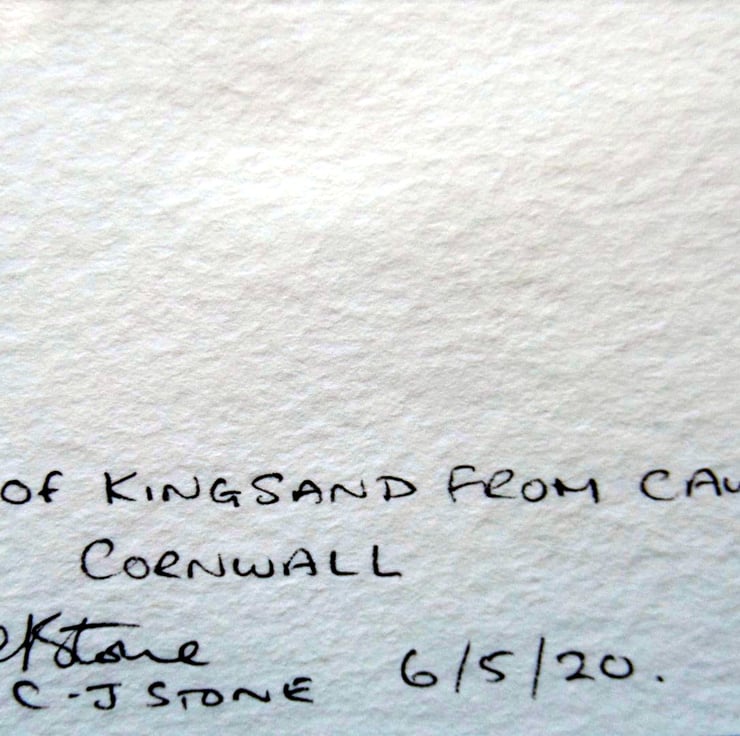 OF KINGSAND FROM CAW
CORNWALL
Stone
C-J STONE 6/5/20.